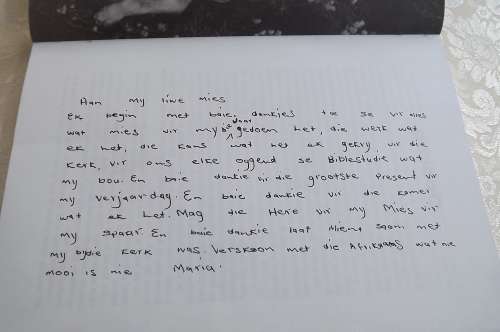 Aan my liwe mies
Ek begin met baie, dankies toe se vir alles
wat mies vir my daar gedoem het, die werk wat
ek het, die kans wat het ek gekry vir die
kerk, vir ons elke oggend se Biblestudie wat
my bou. En baie dankie vir die grootste present vir
my verjaar-dag. En baie dankie vir die kamer
wat ek het. Mag die Here vir my Mies vir
my spaar. En baie dankie laat Mient saam met
my bydie kerk was. Verskoon met die Afrikaans wat nie
mooi is nie Maria.